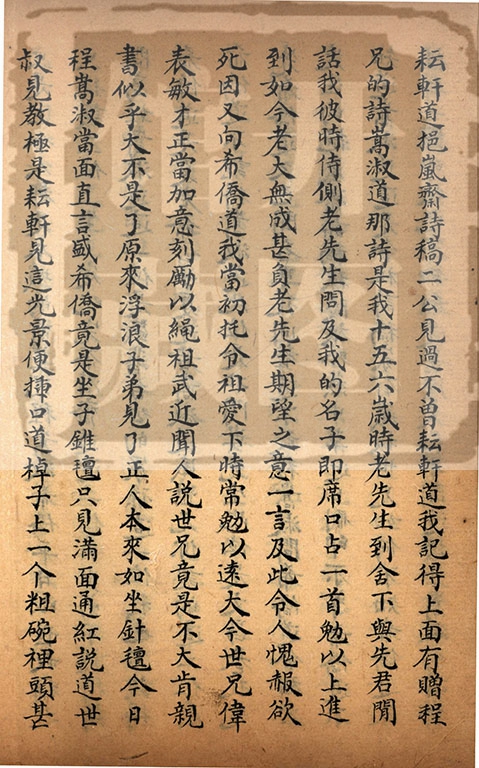 耘軒道挹嵐齋詩稿二公見過不曾耘軒道我記得上面有贈程
兄的詩嵩淑道那詩是我十五六歲時老先生到舍下與先君閒
話我彼時侍側老先生問及我的名子即席口占一首勉以上進
到如今老大無成甚負老先生期望之意一言及此令人愧赧欲
死因又向希僑道我當初托令祖愛下時常勉以遠大今世兄偉
表敏才正當加意刻勵以繩祖武近聞人説世兄竟是不大肯親
書似乎大不是了原來浮浪子弟見了正人本來如坐針氊今日
程嵩淑當面直言盛希僑竟是坐子錐氊只見滿面通紅説道世
叔見教極是耘軒見這光景便揷口道棹子上一个粗碗裡頭甚